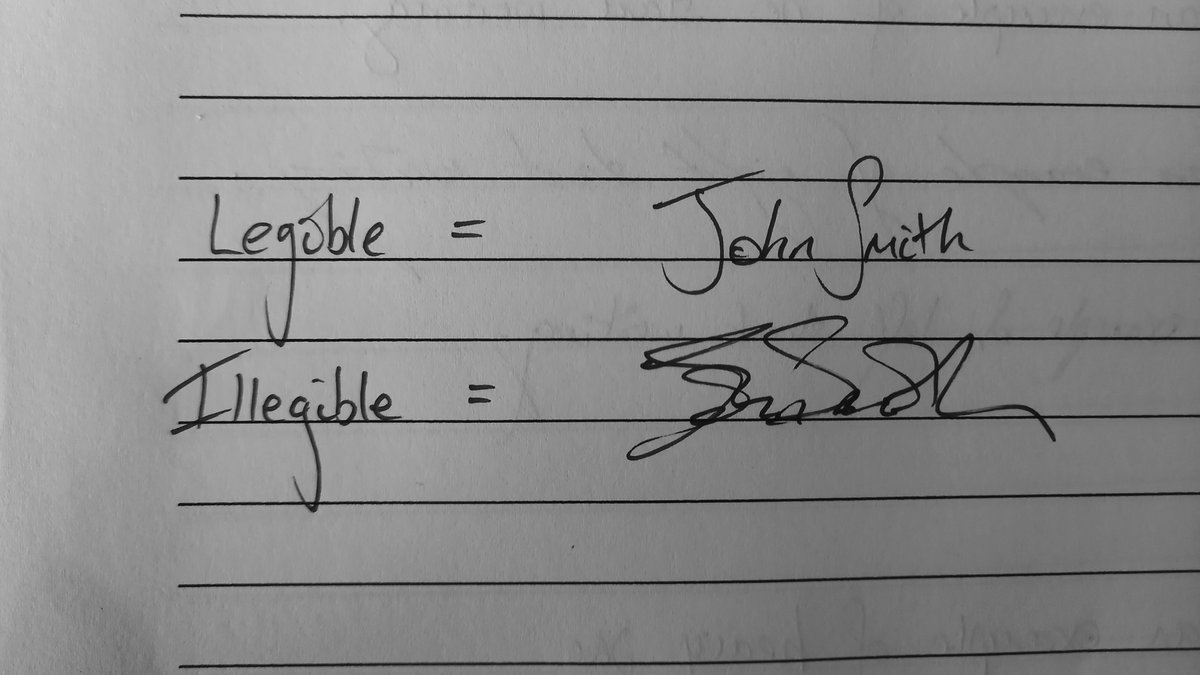 Legible = John Smith
Illegible =